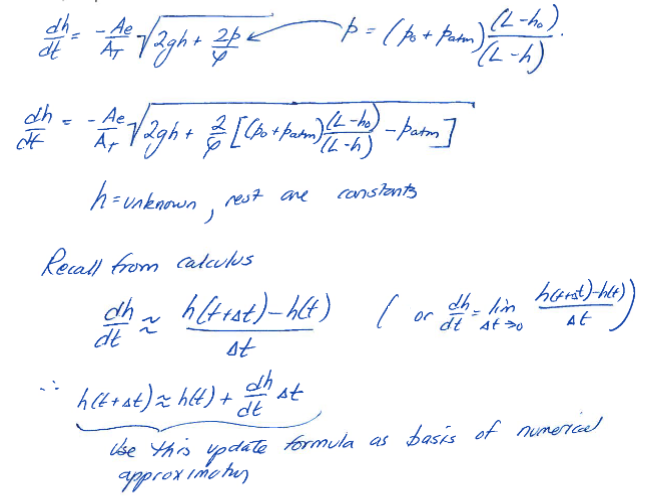 dh/dt = -Ae/AT √(2gh + 2p/φ) ← p = (p₀ + patm) (L-h₀)/(L-h).
dh/dt = -Ae/AT √(2gh + 2/φ [(p₀+patm) (L-h₀)/(L-h) - patm])
h = unknown, rest are constants
Recall from calculus
dh/dt ≈ (h(t+Δt)-h(t))/Δt ( or dh/dt = lim Δt→0 (h(t+Δt)-h(t))/Δt )
∴ h(t+Δt) ≈ h(t) + dh/dt Δt
Use this update formula as basis of numerical
approximation